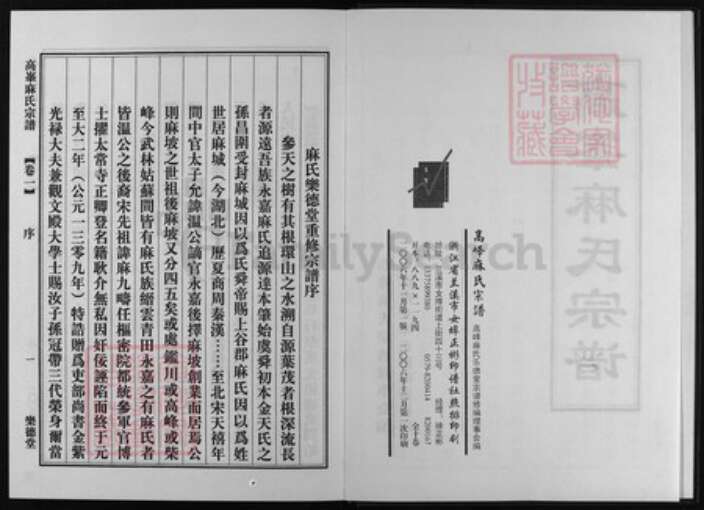 高峰麻氏宗譜
高峰麻氏樂德堂宗譜修編理事會編
浙江省蘭溪市女埠正彬印譜社魚排印刷
地址:蘭溪市女埠街道上街四十三号
經理:
電話:13175899380
0579-8260414
8260167
开本:八八九×一一九四
全十卷
二〇〇六年十二月第一版
二〇〇六年十二月第一次印刷
麻氏宗譜
麻氏樂德堂重修宗譜序
參天之樹有其根環山之水溯自源葉茂者根深流長
者源遠吾族永嘉麻氏追源達本肇始虞舜初本金天氏之
孫昌圍受封麻城因以爲氏舜帝賜上谷郡麻氏因以爲姓
世居麻城(今湖北)歷夏商周秦漢……至北宋天禧年
間中官太子允諱溫公謫官永嘉後擇麻坡創業而居焉公
則麻坡之世祖後麻坡又分四五矣或處鑑川或高峰或柴
峰今武林姑蘇間皆有麻氏族縉雲青田永嘉之有麻氏者
皆溫公之後裔宋先祖諱麻九疇任樞密院都統參軍官博
士擢太常寺正卿登名籍耿介無私因奸佞誣陷而終于元
至大二年(公元一三〇九年)特誥贈爲吏部尚書金紫
光祿大夫兼觀文殿大學士賜汝子孫冠帶三代榮身爾當
高峯麻氏宗譜
【卷一】
序
一
樂德堂